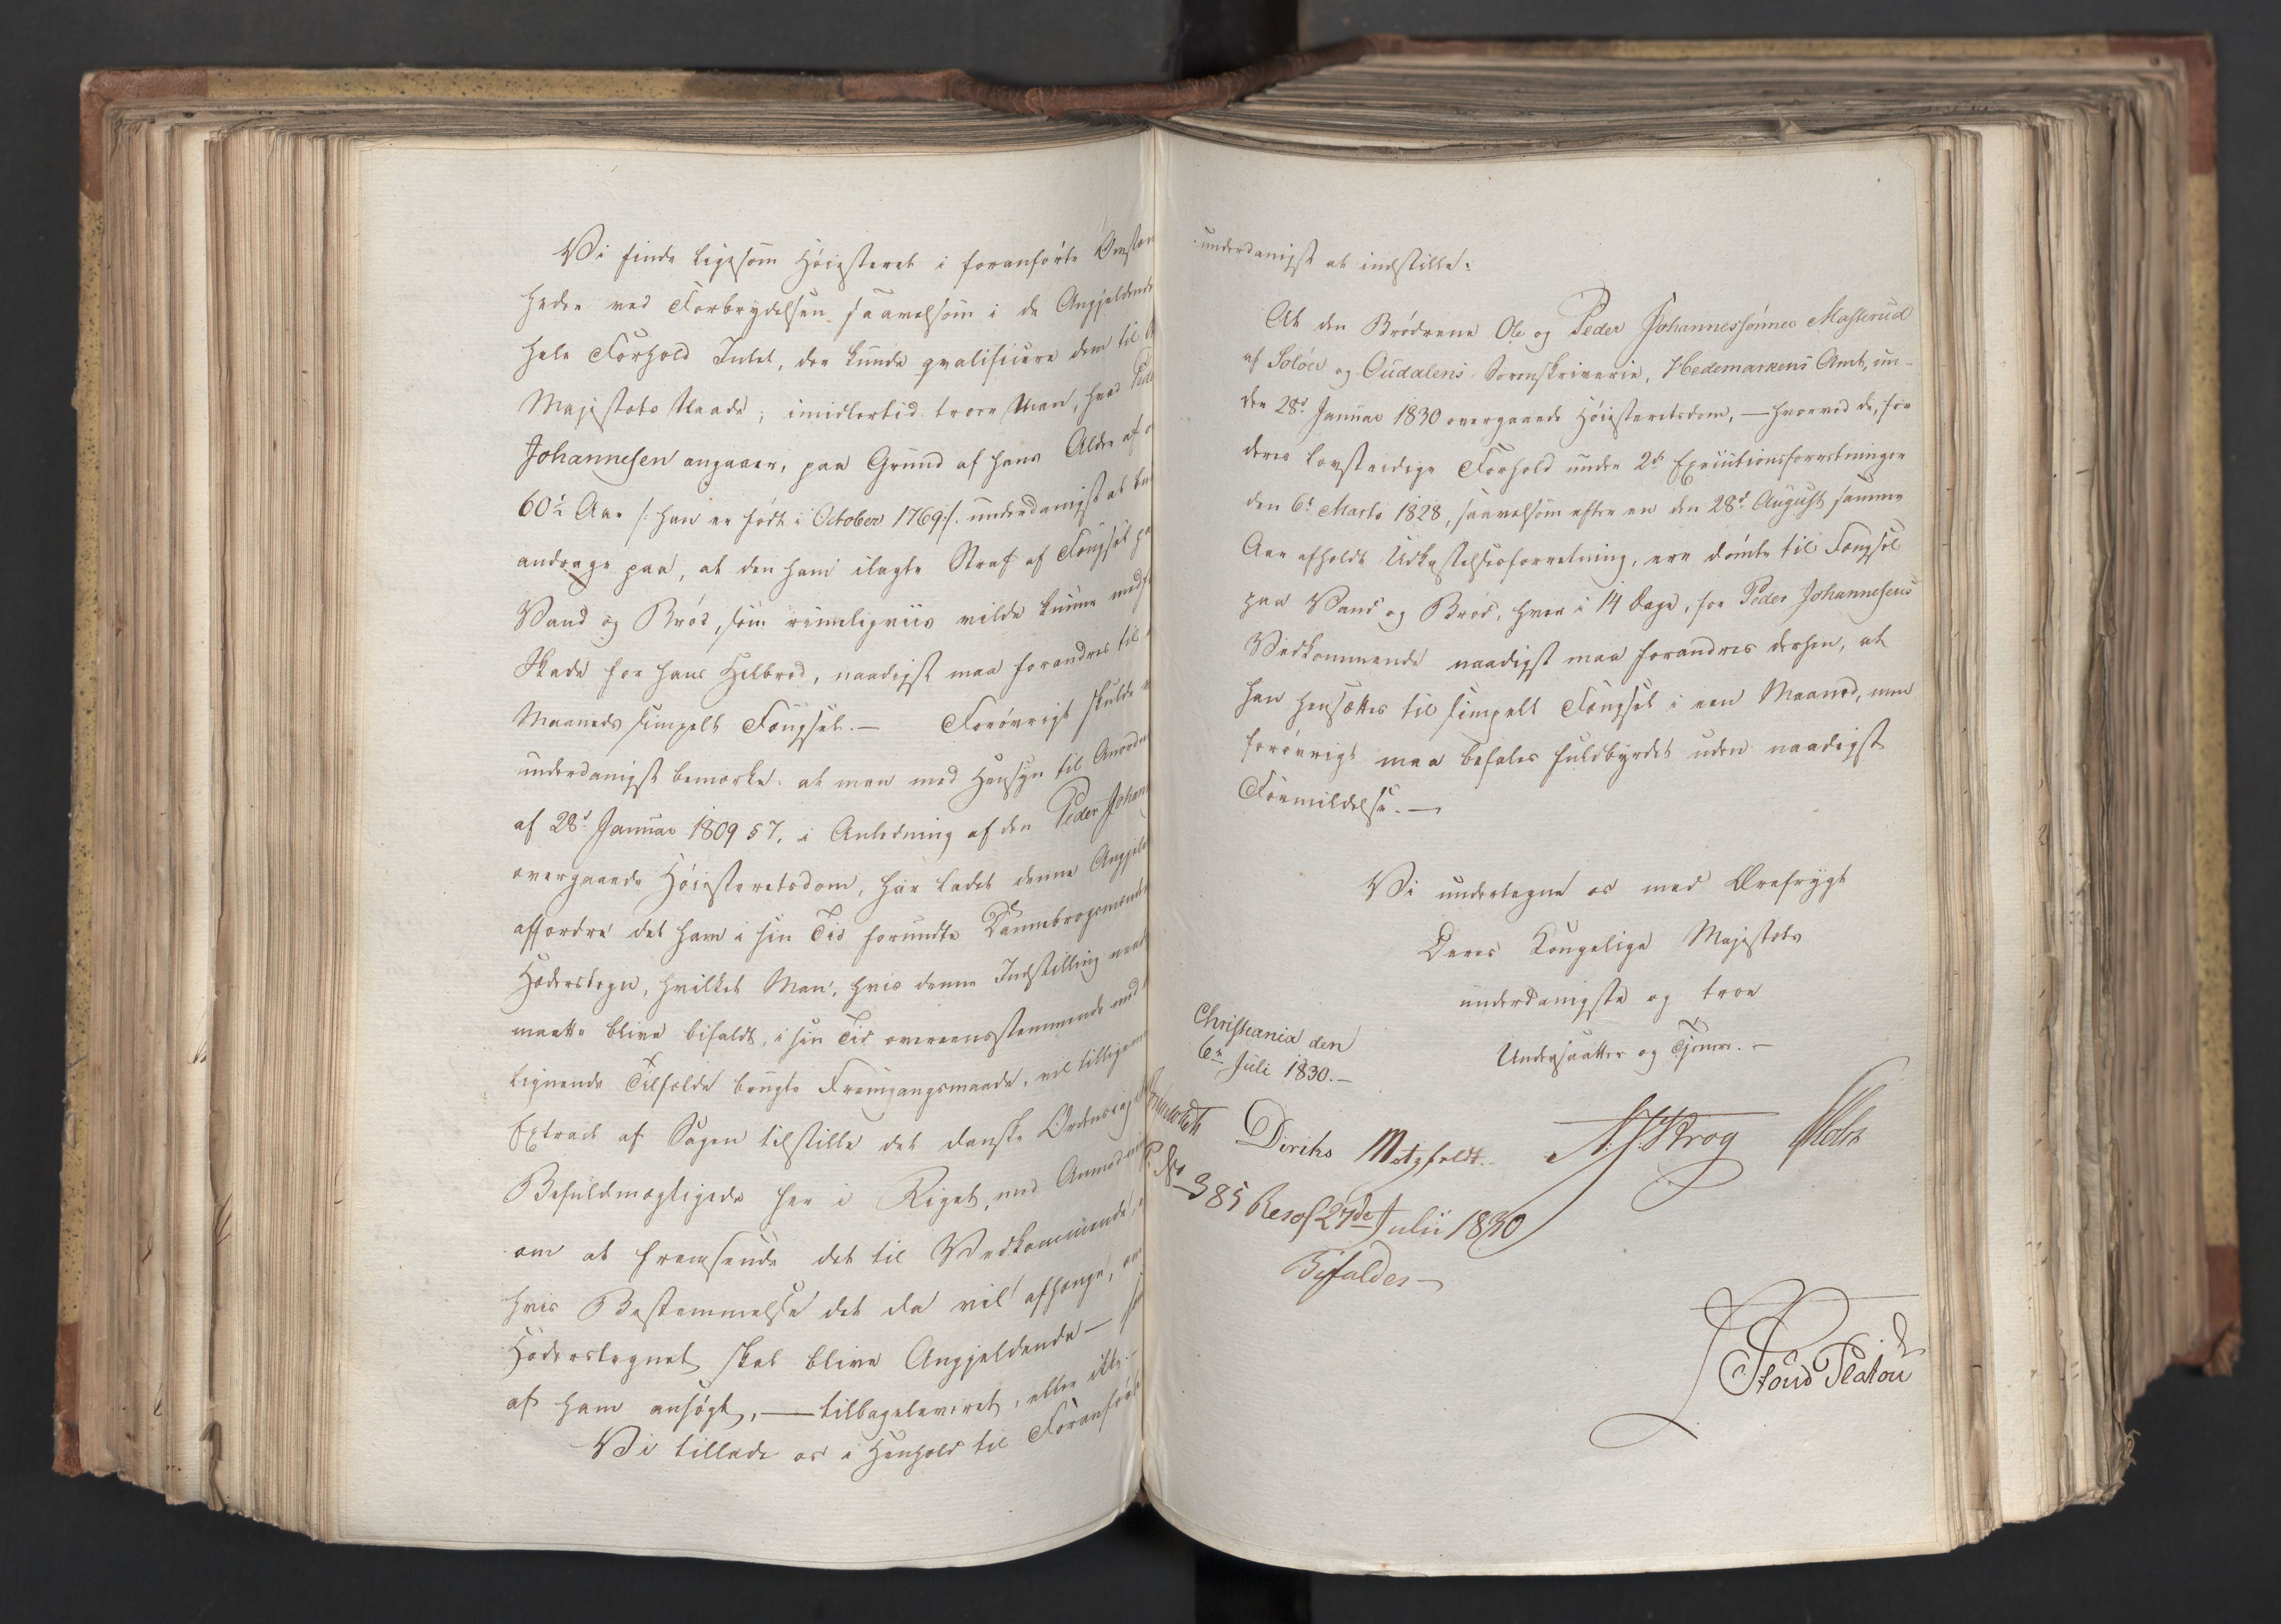 Vi finde ligesom Høiesteret i foranførte Omstæn
heder ved Forbrydelsen saavelsom i de Angjeldende
hele Forhold Intet, der kunde qvalificere dem til
Majestæts Naade; imidlertid troer Man, hvad Pede
Johannesen angaaer, paa Grund af hans Alder af
60½ Aar /: han er født i October 1769 :/ underdanigst at
andrage paa, at den ham ilagte Straf af Fængsel pa
Vand og Brød, som rimeligviis vilde kunne med
Skade for hans Helbred, naadigst maa forandres til
Maaneds simpelt Fængsel. — Forøvrigt skulde
underdanigst bemærke: at man med Hensyn til Anordn
af 28d Januar 1809 § 7, i Anledning af den Peder Johann
overgaaede Høiesteretsdom, har ladet denne Angjeld
affordre det ham i sin Tid forundte Dannebrogsmænds
Hæderstegn, hvilket Man, hvis denne Indstilling naad
maatte blive bifaldt, i sin Tid overeensstemmende med
lignende Tilfælde brugte Fremgangsmaade, vil tilligem
Extract af Sagen tilstille det danske
Befuldmægtigede her i Riget, med Anmodning
om at fremsende det til Vedkommende,
hvis Bestemmelse det da vil afhænge, om
Hæderstegnet skal blive Angjeldende —
af ham ansøgt, — tilbageleveret, eller ikke. —
Vi tillade os i Henhold til Foranført
underdanigst at indstille:
At den Brødrene Ole og Peder Johannessønner Masterud
af Soløer og Oudalens Sorenskriverie, Hedemarkens Amt, un-
der 28d Januar 1830 overgaaede Høiesteretsdom, — hvorved de, for
deres lovstridige Forhold under 2de Executionsforretninger
den 6t Marts 1828, saavelsom efter en den 28d August samme
Aar afholdt Udkastelsesforretning, ere dømte til Fængsel
paa Vand og Brød, hver i 14 Dage, for Peder Johannesens
Vedkommende naadigst maa forandres derhen, at
han hensættes til simpelt Fængsel i een Maaned, men
forøvrigt maa befales fuldbyrdet uden naadigst
Formildelse. —
Vi undertegne os med Ærefrygt
Deres Kongelige Majestæts
underdanigste og troe
Undersaatter og Tjenere. —
Christiania den
6te Juli 1830. —
Diriks Motzfeldt. N. J. Krog Holst
No 385 Resol 27de Julii 1830
Bifaldes —
Stoud Platou